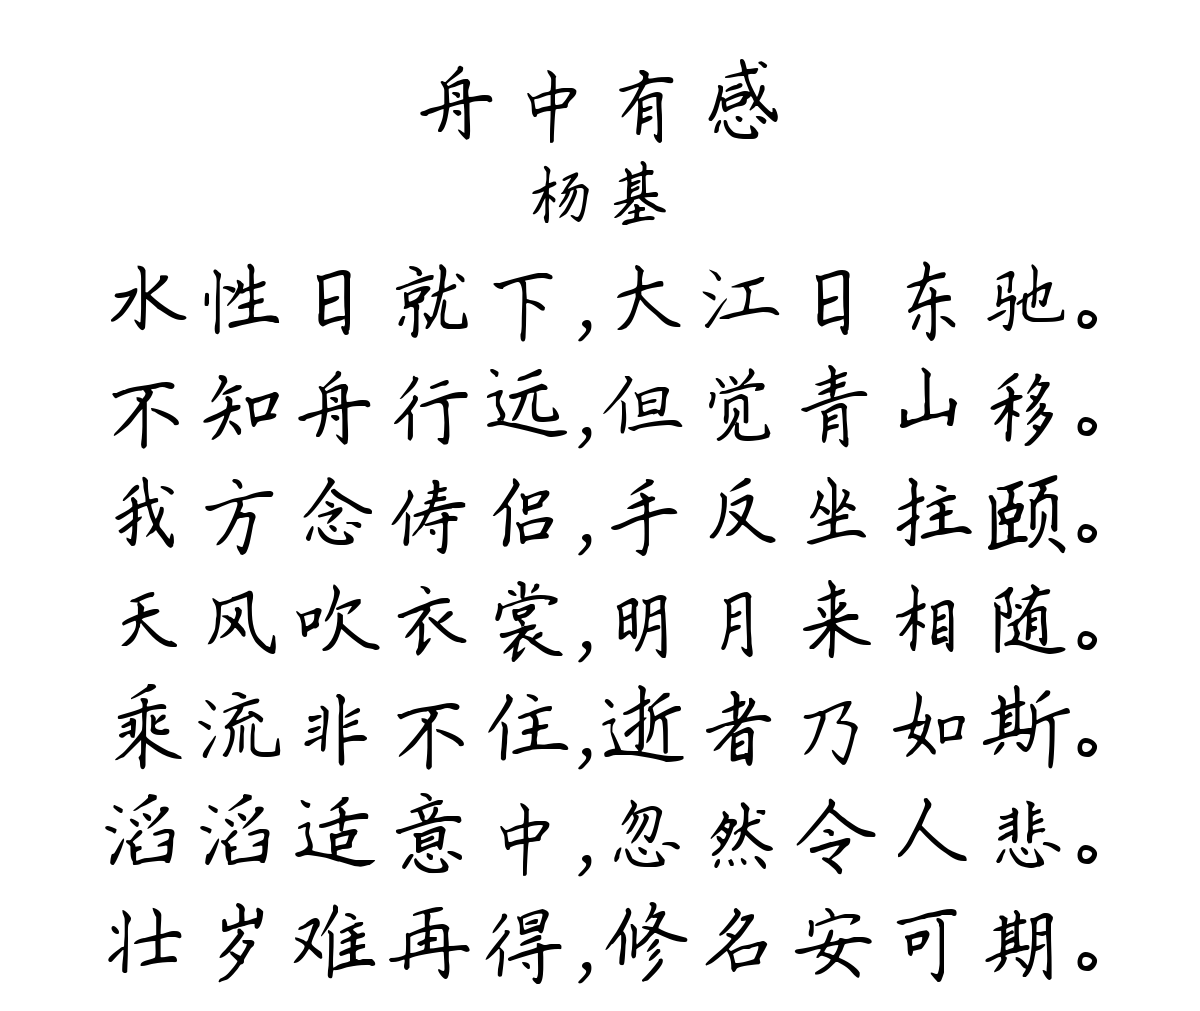 舟中有感
杨基
水性日就下,大江日东驰。
不知舟行远,但觉青山移。
我方念俦侣,手反坐拄颐。
天风吹衣裳,明月来相随。
乘流非不住,逝者乃如斯。
滔滔适意中,忽然令人悲。
壮岁难再得,修名安可期。